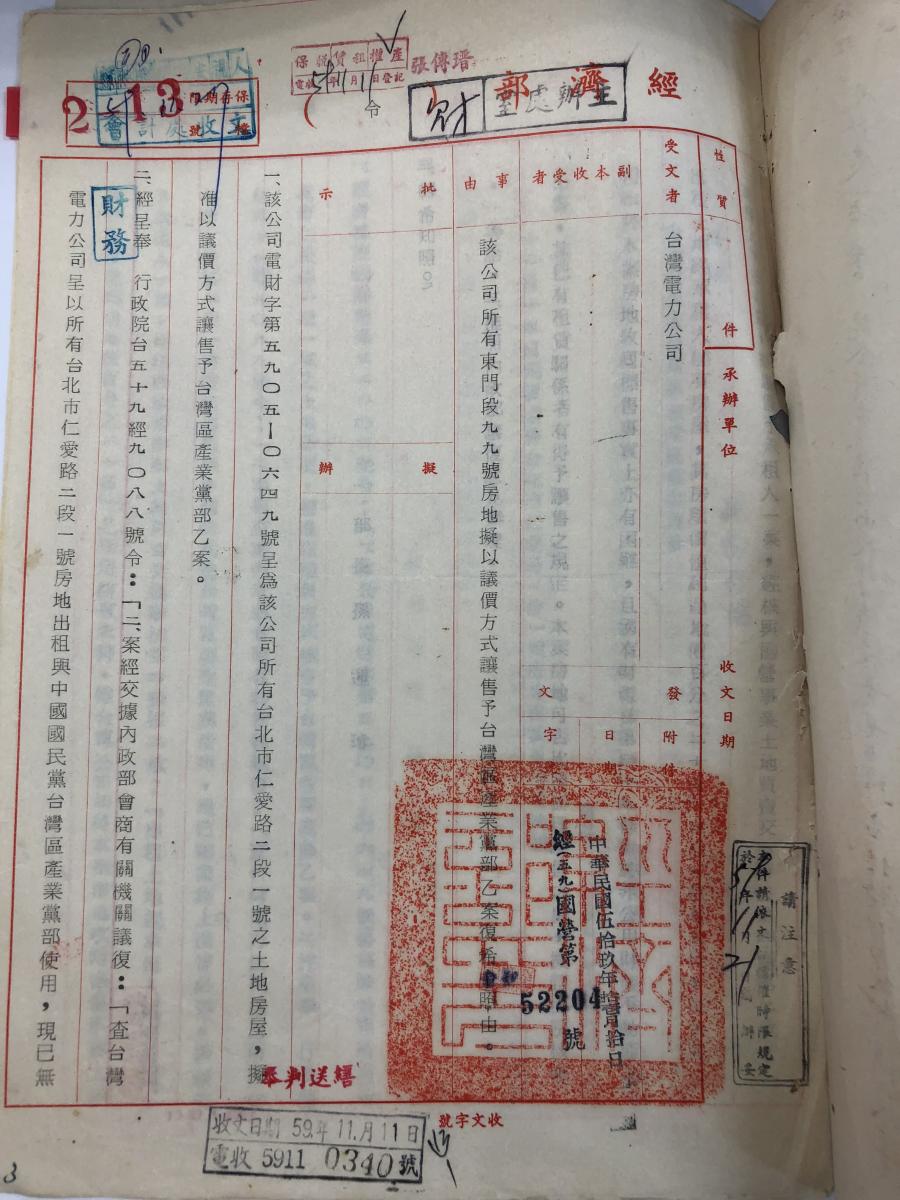 經濟部
令
財
主辦處室
張傳瑨
產權租賃稅保
登記
電收
年 月 日
59 11 11
213
保存期限
號
檔
收文
會計處
財務
性質
件
受文者
台灣電力公司
承辦單位
收文日期
副本收受者
事由
該公司所有東門段九九號房地擬以議價方式讓售予台灣區產業黨部乙案復希知照由。
批示
擬辦
發文
附件
日期
字
中華民國伍拾玖年拾壹月拾日
經(五九)國營第
52204
號
一、該公司電財字第五九〇五—〇六四九號呈爲該公司所有台北市仁愛路二段一號之土地房屋,擬
准以議價方式讓售予台灣區產業黨部乙案。
二、經呈奉 行政院台五十九經九〇八八號令:「二、案經交據內政部會商有關機關議復:「查台灣
電力公司呈以所有台北市仁愛路二段一號房地出租與中國國民黨台灣區產業黨部使用,現已無
請注意
繕送判奉
收文字號
收文日期 59.年 11.月 11日
電收 5911 0340 號
3